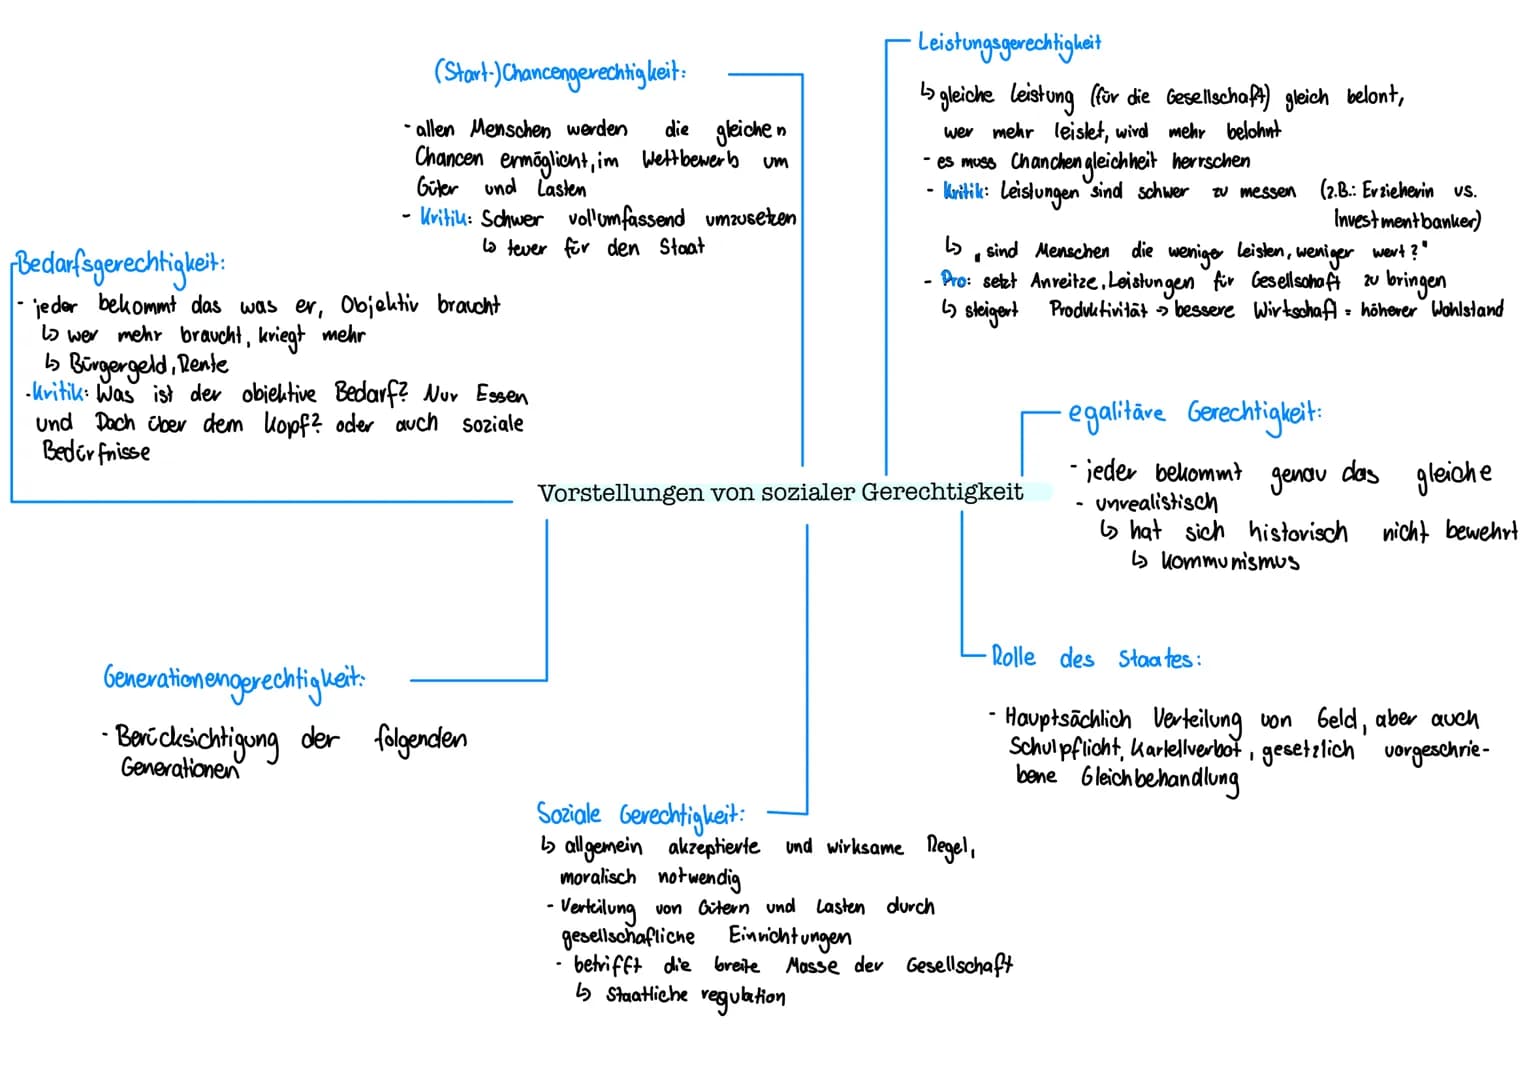 (Start-)Chancengerechtigkeit:
- allen Menschen werden die gleichen
Chancen ermöglicht, im Wettbewerb um
Güter und Lasten
- Kritik: Schwer vollumfassend umzusetzen
↳ teuer für den Staat
Leistungsgerechtigkeit
↳ gleiche Leistung (für die Gesellschaft) gleich belont,
wer mehr leistet, wird mehr belohnt
- es muss Chanchengleichheit herrschen
- Kritik: Leistungen sind schwer zu messen (z.B.: Erzieherin vs.
Investmentbanker)
↳ „sind Menschen die weniger Leisten, weniger wert?"
- Pro: setzt Anreitze, Leistungen für Gesellschaft zu bringen
↳ steigert Produktivität → bessere Wirtschaft = höherer Wohlstand
Bedarfsgerechtigkeit:
- jeder bekommt das was er, Objektiv braucht
↳ wer mehr braucht, kriegt mehr
↳ Bürgergeld, Rente
- Kritik: Was ist der objektive Bedarf? Nur Essen
und Dach über dem Kopf? oder auch soziale
Bedürfnisse
egalitäre Gerechtigkeit:
- jeder bekommt genau das gleiche
- unrealistisch
↳ hat sich historisch nicht bewehrt
↳ Kommunismus
Vorstellungen von sozialer Gerechtigkeit
Generationengerechtigkeit:
- Berücksichtigung der folgenden
Generationen
Rolle des Staates:
- Hauptsächlich Verteilung von Geld, aber auch
Schulpflicht, Kartellverbot, gesetzlich vorgeschrie-
bene Gleichbehandlung
Soziale Gerechtigkeit:
↳ allgemein akzeptierte und wirksame Regel,
moralisch notwendig
- Verteilung von Gütern und Lasten durch
gesellschafliche Einrichtungen
- betrifft die breite Masse der Gesellschaft
↳ Staatliche regulation